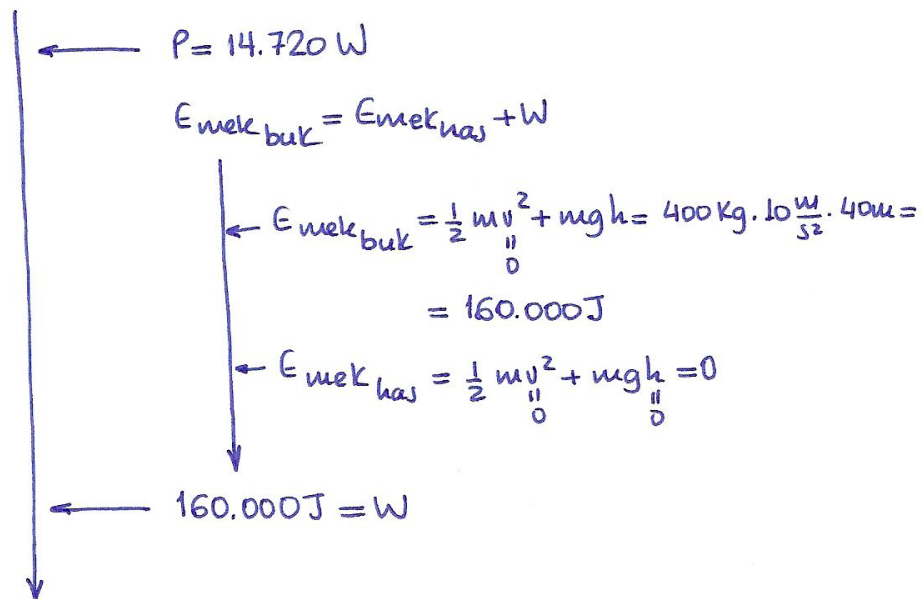 P = 14.720 W
Emek buk = Emek has + W
Emek buk = 1/2 mv² + mgh = 400 kg . 10 m/s² . 40 m =
"
0
= 160.000 J
Emek has = 1/2 mv² + mgh = 0
" "
0 0
160.000 J = W